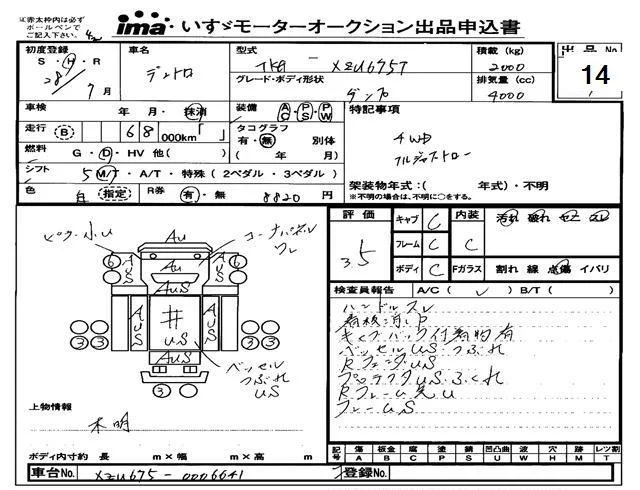 ima いすゞモーターオークション出品申込書
※赤太枠内は必ず
ボールペンで
ご記入下さい。
初度登録
S・H・R
28年
7月
車名
デュトロ
型式
TKG - XZU675T
グレード・ボディ形状
ダンプ
積載(kg)
2000
排気量(cc)
4000
出品No
14
車検 年・月・抹消
装備 AC・PS・PW
特記事項
走行 B 68000km「 」
タコグラフ
有・無 別体
( 年 月)
4WD
フルジャストロー
燃料 G・D・HV 他( )
シフト 5 M/T・A/T・特殊(2ペダル・3ペダル)
架装物年式:( 年式)・不明
※不明の場合は、不明に○をする。
色 白 指定 R券 有・無 8820円
評価
3.5
キャブ C
フレーム C
ボディ C
内装 C
Fガラス
汚れ 破れ ヤニ スレ
割れ 線 点傷 イバリ
検査員報告 A/C( ✓ ) B/T( )
ハンドルスレ
看板消し P
キャブバック付着物有
ベッセルUS つぶれ
RフェンダUS
プロテクタUS ふくれ
Rフレーム先U
フレームS
ピラー小U
コーナパネル
ワレ
Au
Au
AuS
AUS
AUS
AUS
AUS
井
US
AUS
6
6
3
3
3
ベッセル
つぶれ
US
上物情報
不明
ボディ内寸約 長 m×幅 m×高 m
記号 傷 A 板金 B 腐 C 塗 P 錆 S 凹凸曲 U 波 W 穴 H 跡 M レツ割 T
車台No. XZU675-0006641
登録No.